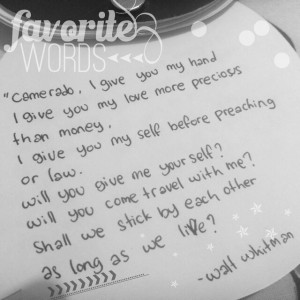 favorite
WORDS
"Camerado, I give you my hand
I give you my love more precious
than money.
I give you my self before preaching
or law.
will you give me yourself?
will you come travel with me?
Shall we stick by each other
as long as we live?
-walt whitman